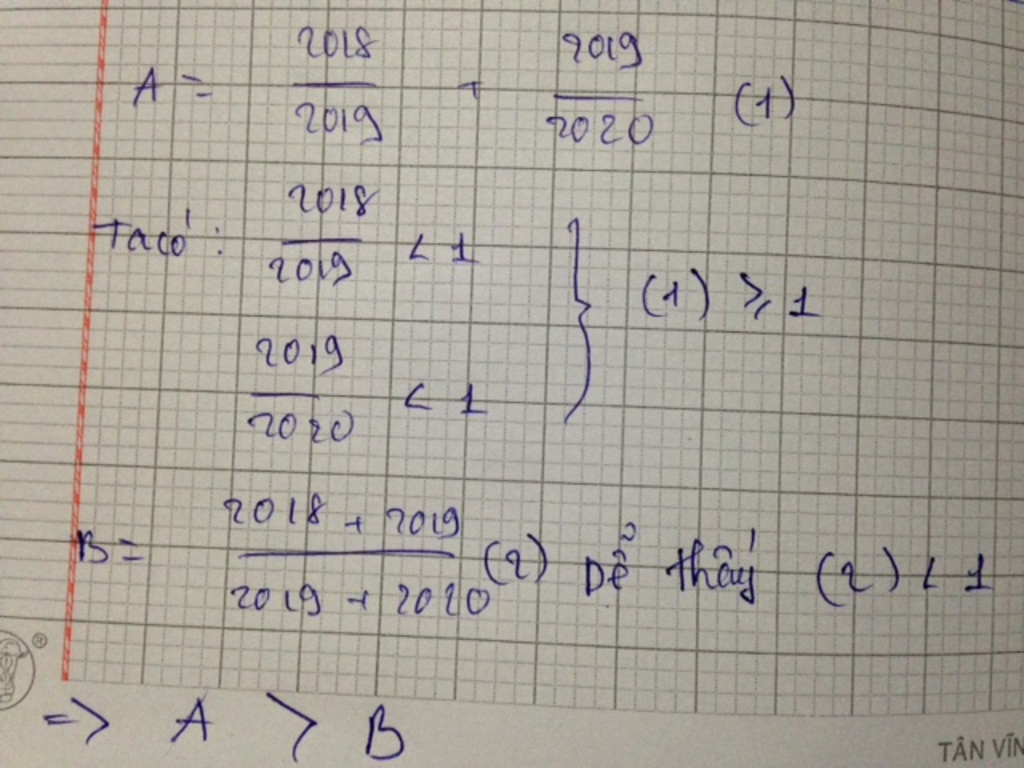 A = 2018/2019 + 2019/2020 (1)
Ta có: 2018/2019 < 1
2019/2020 < 1
} (1) ⩾ 1
B = (2018 + 2019)/(2019 + 2020) (2) Dễ thấy (2) < 1
=> A > B
®
TÂN VĨN